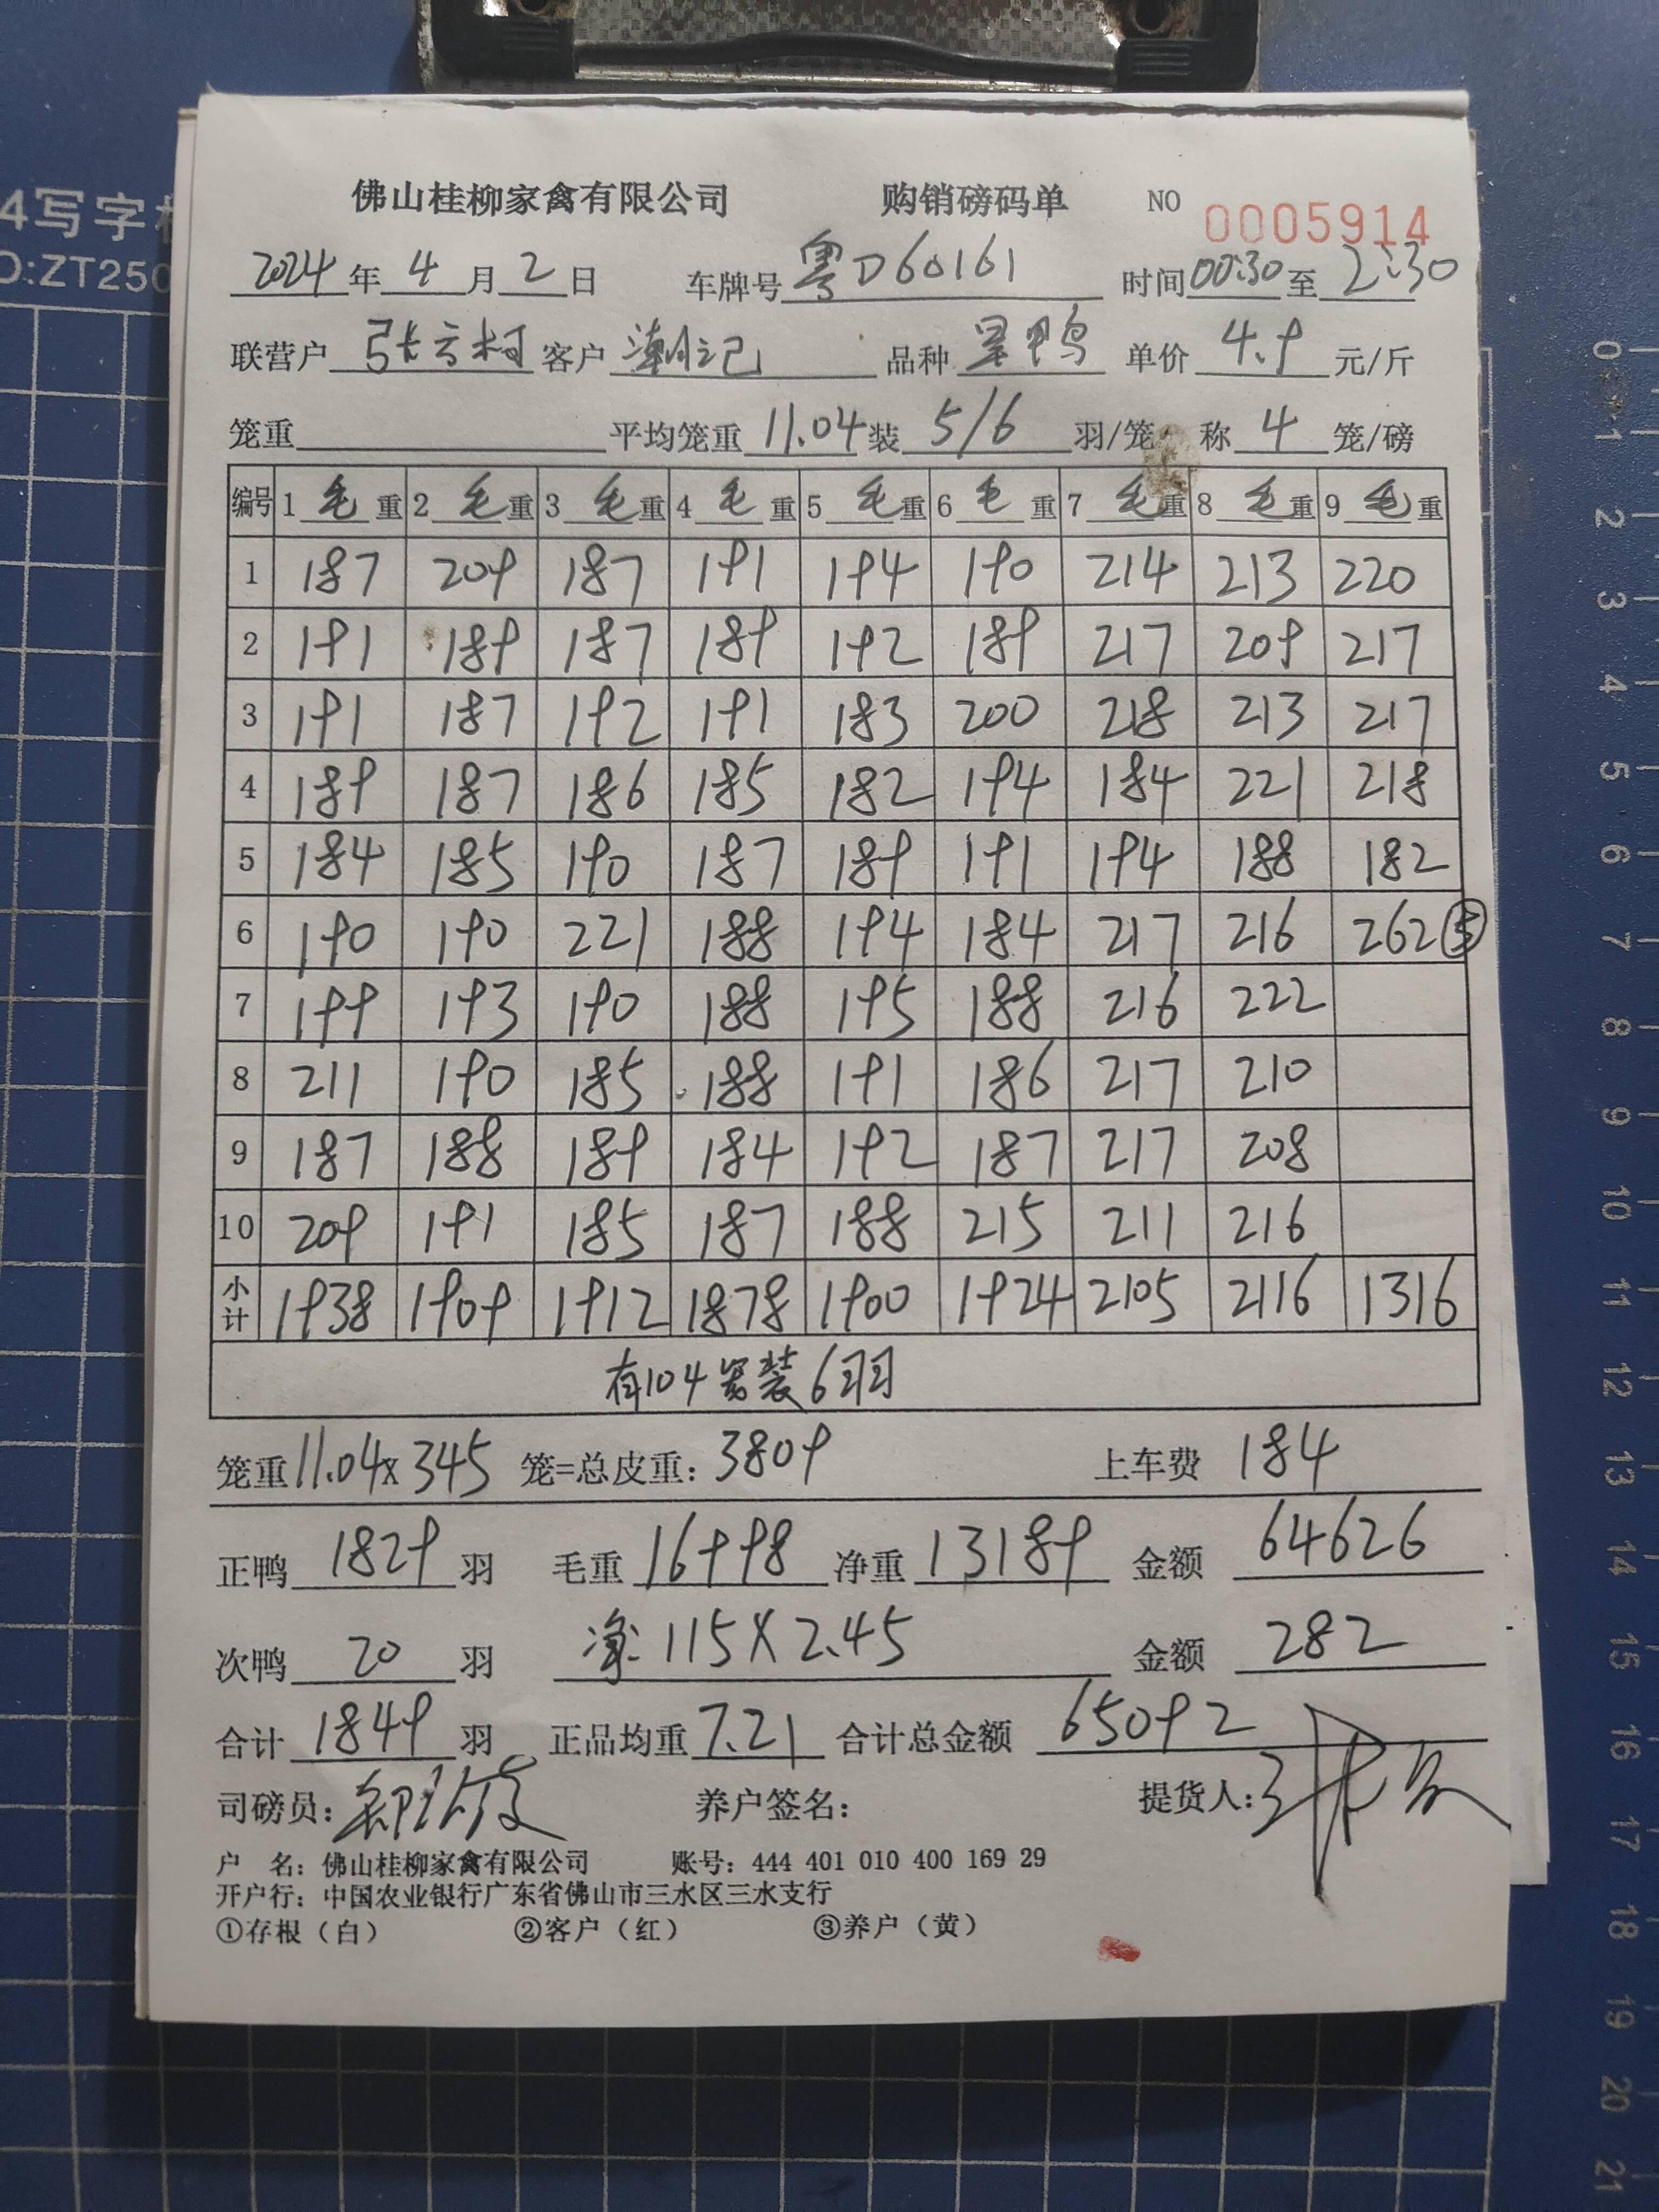 佛山桂柳家禽有限公司 购销磅码单 NO 0005914
2024年4月2日 车牌号粤D60161 时间00:30至2:30
联营户张云村 客户潮记 品种 单价4.9元/斤
笼重 平均笼重11.04装5/6羽/笼 称4笼/磅
编号 1毛重 2毛重 3毛重 4毛重 5毛重 6毛重 7毛重 8毛重 9毛重
1 187 209 187 191 194 190 214 213 220
2 191 189 187 189 192 189 217 209 217
3 191 187 192 191 183 200 218 213 217
4 189 187 186 185 182 194 184 221 218
5 184 185 190 187 189 191 194 188 182
6 190 190 221 188 194 184 217 216 262⑤
7 199 193 190 188 195 188 216 222
8 211 190 185 188 191 186 217 210
9 187 188 189 184 192 187 217 208
10 209 191 185 187 188 215 211 216
小计 1938 1909 1912 1878 1900 1924 2105 2116 1316
有104笼装6羽
笼重11.04×345笼=总皮重:3809 上车费184
正鸭1829羽 毛重16998 净重13189 金额64626
次鸭20羽 净:115×2.45 金额282
合计1849羽 正品均重7.21 合计总金额65092
司磅员: 养户签名: 提货人:
户 名:佛山桂柳家禽有限公司 账号:444 401 010 400 169 29
开户行:中国农业银行广东省佛山市三水区三水支行
①存根(白) ②客户(红) ③养户(黄)
4写字
O:ZT250
0 1 2 3 4 5 6 7 8 9 10 11 12 13 14 15 16 17 18 19 20 21